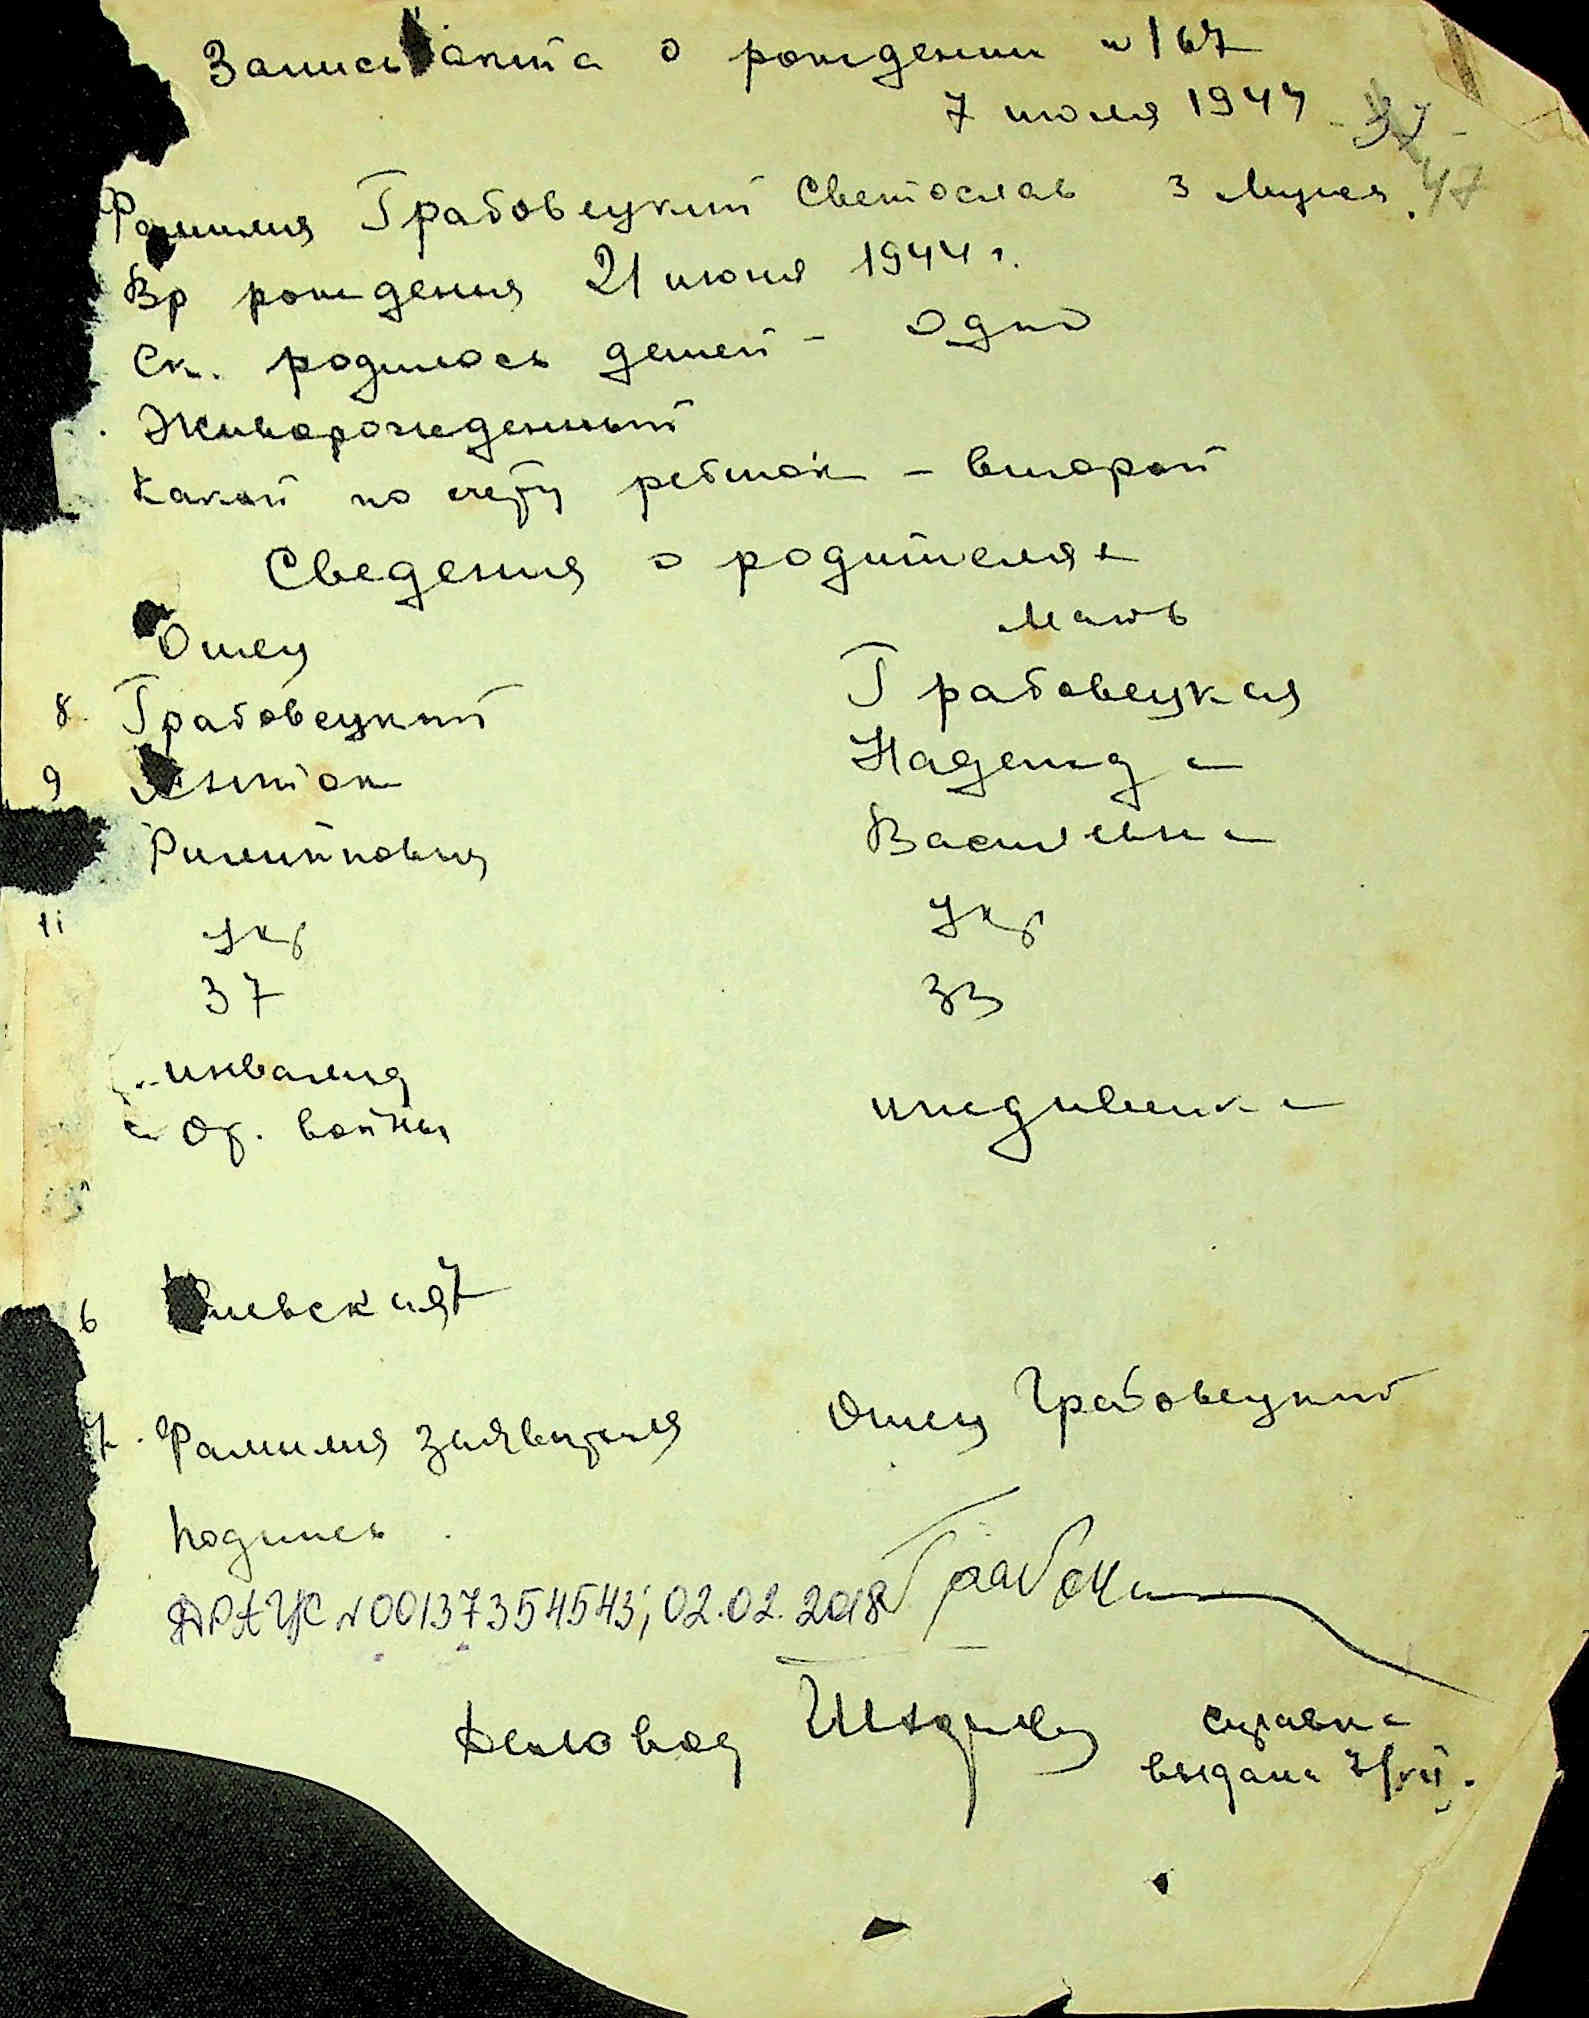 Запись акта о рождении № 167
7 июля 1944
- 37 -
47
Фамилия Грабовецкий Светослав 3 Мужск.
Вр рождения 21 июня 1944 г.
Ск. родилось детей - одно
Живорожденный
Какой по счету ребенок - второй
Сведения о родителях
Отец Мать
8 Грабовецкий Грабовецкая
9 Надежда
Васильевна
11 укр укр
37 33
инвалид
От. войны иждивенка
6 Киевская 7
7. Фамилия заявителя Отец Грабовецкий
Подпись
ДРАЦС N 00137354543; 02.02.2018
Деловод справка
выдана 7/VII.